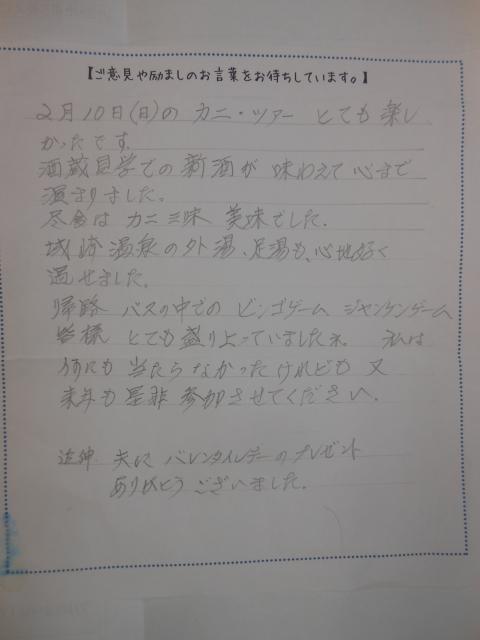 【ご意見や励ましのお言葉をお待ちしています。】
2月10日(日)の カニ・ツアー とても 楽し
かったです。
酒蔵見学での 新酒が 味わえて 心まで
温まりました。
昼食は カニ三昧 美味でした。
城崎温泉の外湯、足湯も、心地好く
過せました。
帰路 バスの中での ビンゴゲーム ジャンケンゲーム
皆様 とても 盛り上っていましたネ 私は
何にも 当たらなかったけれども 又
来年も 是非 参加させてください。
追伸 夫に バレンタインデーのプレゼント
ありがとう ございました。